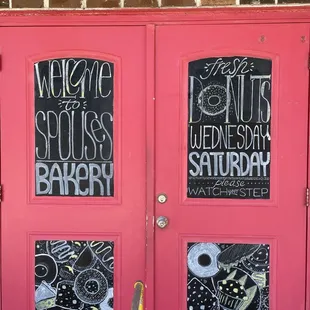 WELCOME
to
SPOUSES
BAKERY
fresh
DONUTS
WEDNESDAY
SATURDAY
please
WATCH your STEP